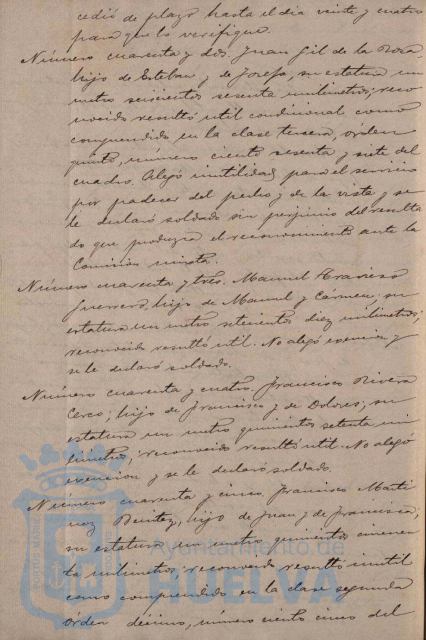 cedió de plazo hasta el dia veinte y cuatro
para que lo verifique.
Número cuarenta y dos. Juan Gil de la Rosa,
hijo de Esteban y de Josefa, su estatura un
metro seiscientos sesenta milimetros; reco
nocido resultó util condicional como
comprendido en la clase tercera, orden
quinto, número ciento sesenta y siete del
cuadro. Alegó inutilidad para el servicio
por padecer del pecho y de la vista y se
le declaró soldado sin perjuicio del resulta
do que produzca el reconocimiento ante la
Comision mixta.
Número cuarenta y tres. Manuel
Guerrero, hijo de Manuel y Cármen; su
estatura un metro setecientos diez milimetros;
reconocido resultó util. No alegó exencion y
se le declaró soldado.
Número cuarenta y cuatro. Francisco Rivera
hijo de Francisco y de Dolores; su
estatura un metro quinientos setenta mi
límetros; reconocido resultó util. No alegó
exencion y se le declaró soldado.
Número cuarenta y cinco. Francisco Marti
nez Benitez, hijo de Juan y de Francisca;
su estatura un metro quinientos cincuen
ta milimetros; reconocido resultó inutil
como comprendido en la clase segunda
órden décimo, número ciento cinco del
Ayuntamiento de
HUELVA